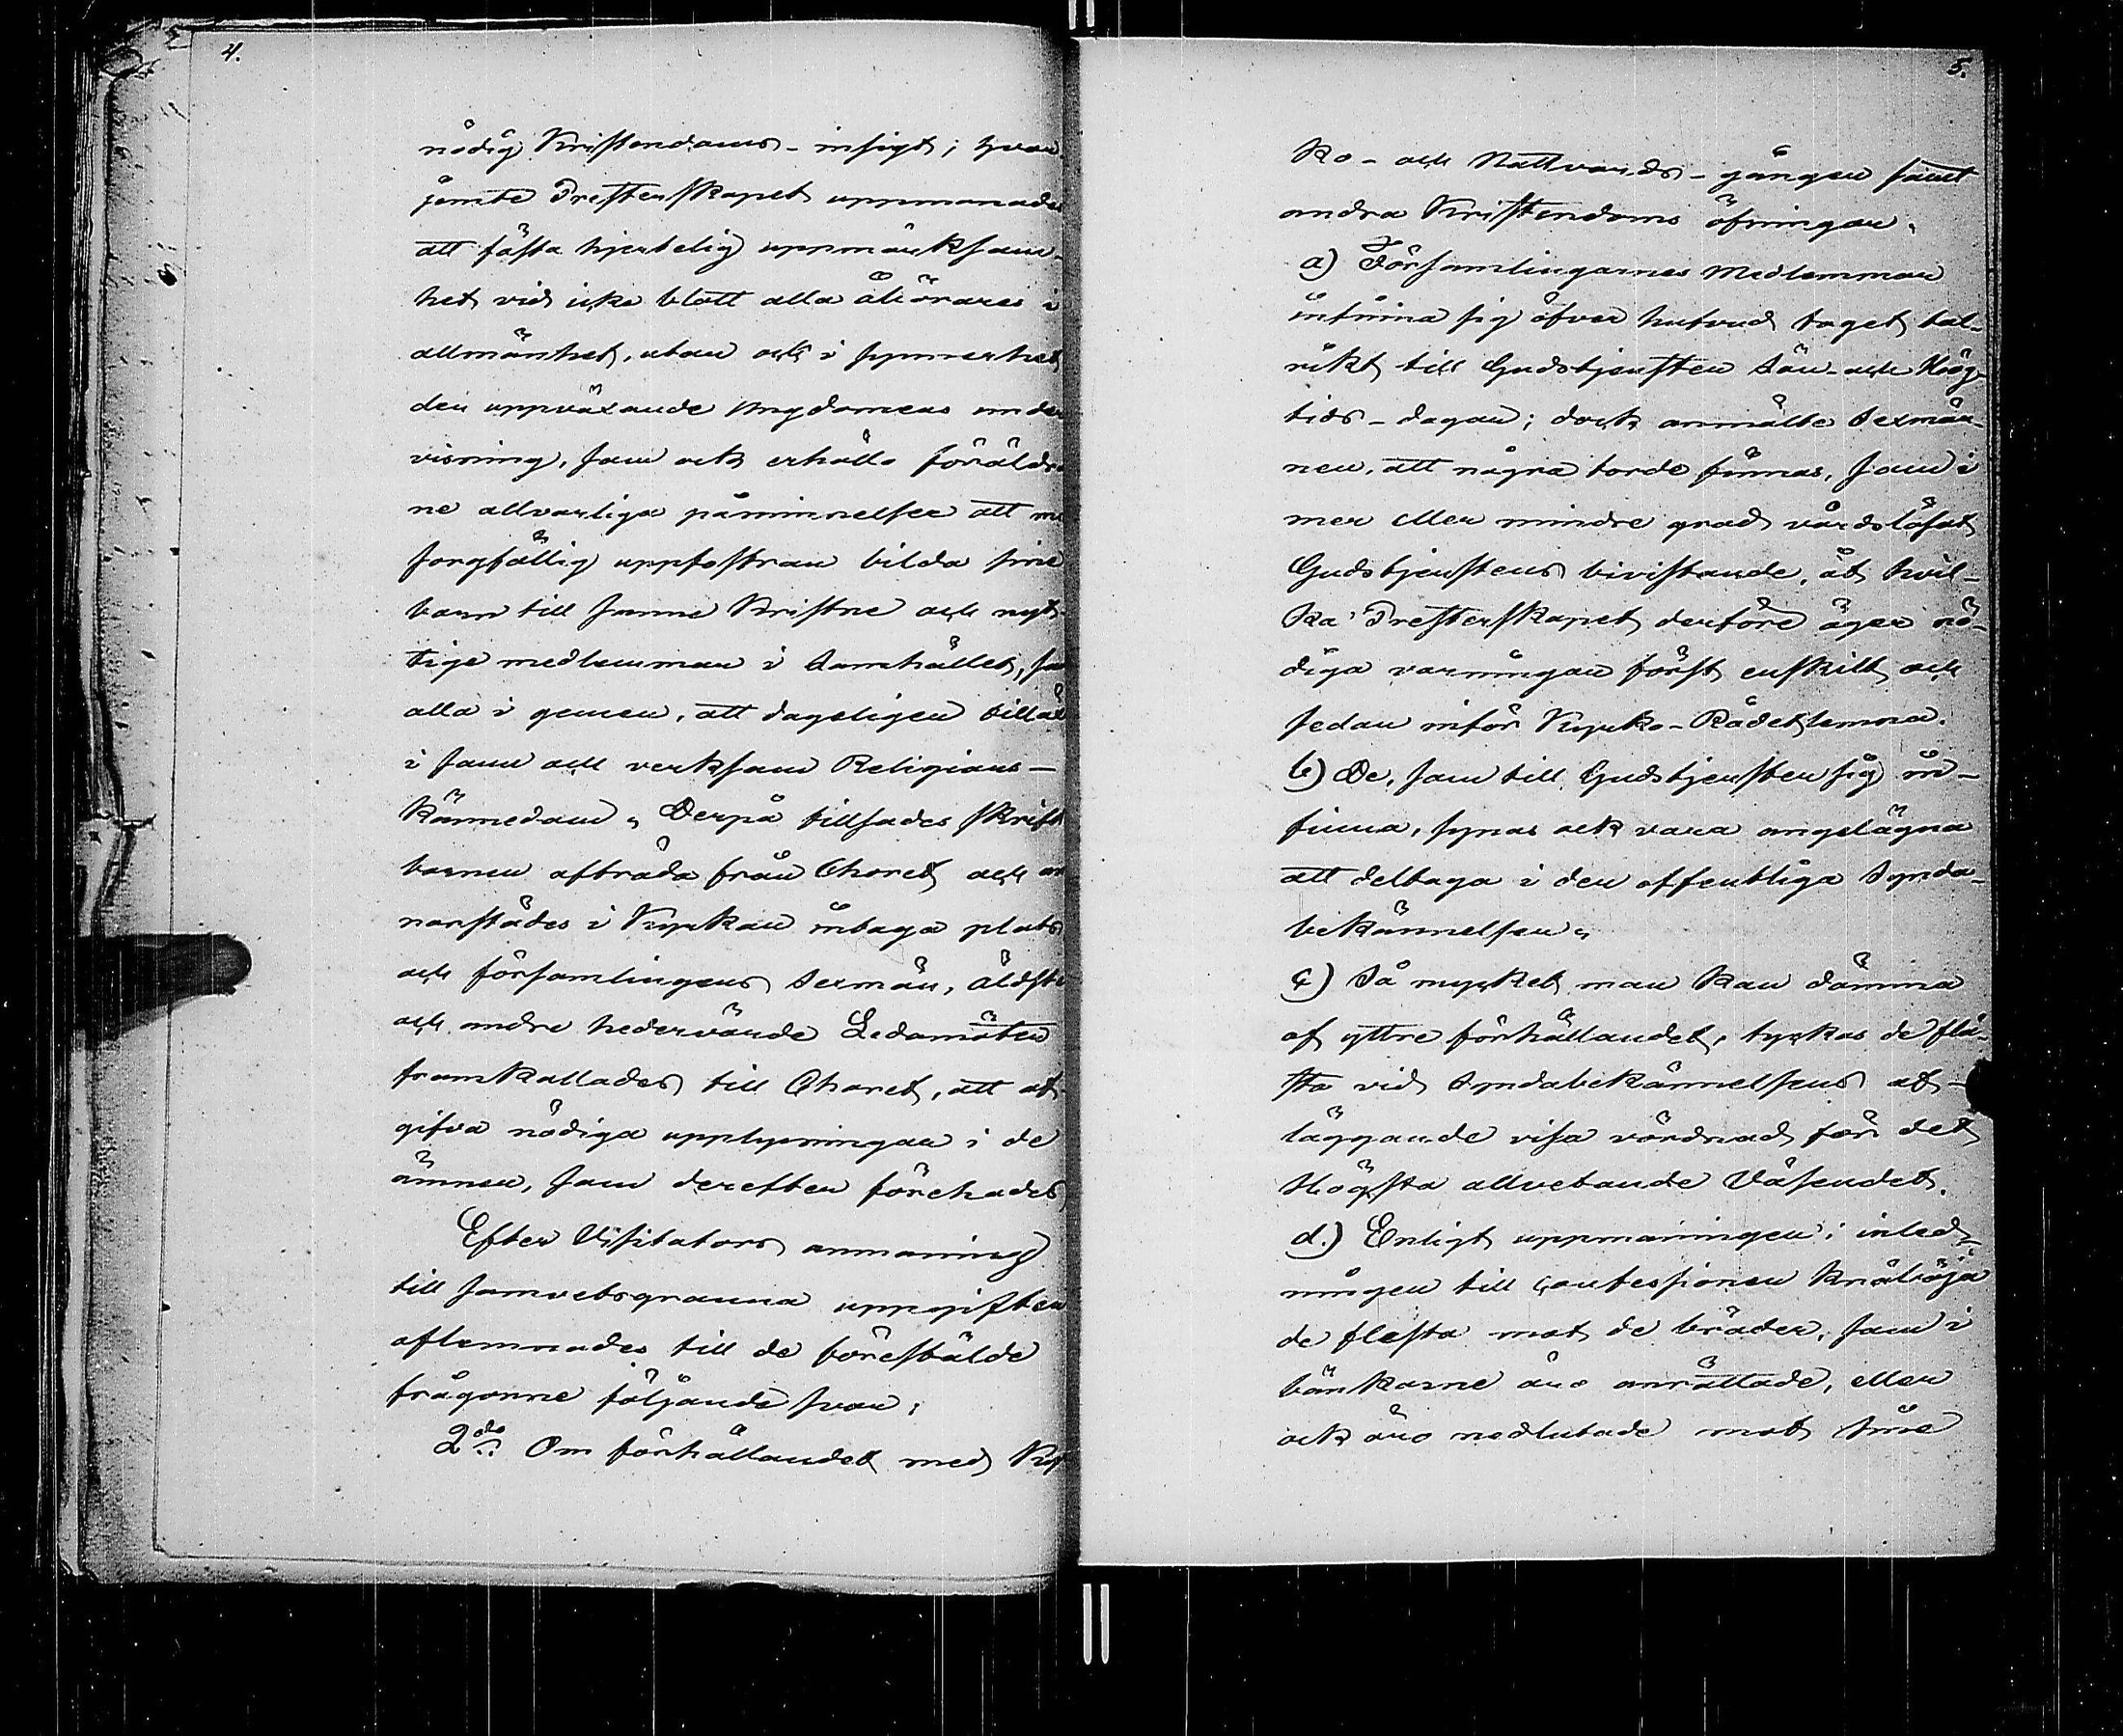 4.
nödig Kristendoms-insigt; hvar-
jemte Presterskapet uppmanades
att fästa hjertelig uppmärksam-
het vid icke blott alla åhörares i
allmänhet, utan ock i synnerhet
den uppväxande Ungdomens under
visning, som ock erhöllo föräldra
ne allvarliga påminnelser att me
sorgfällig uppfostran bilda sine
barn till sanna Kristne och nyt-
tige medlemmar i Samhället, sa
alla i gemen, att dageligen tillväx
i sann och verksam Religions-
kännedom. Derpå tillsades skrift
barnen afträda från Choret och an
norstädes i Kyrkan intaga plats
och församlingens Sexmän, äldste
och andre hedervärde Ledamöter
framkallades till Choret, att af-
gifva nödiga upplysningar i de
ämnen, som derefter förehades
Efter Visitators anmaning
till samvetsgranna uppgifter
aflemnades till de förestälde
frågorne följande svar:
2do Om förhållandet med Kyr
5.
ko- och Nattvards-gången samt
andra Kristendoms öfningar.
a) Församlingarnes Medlemmar
infinna sig öfver hufvud taget tal-
rikt till Gudstjensten Sön- och Hög-
tids-dagar; dock anmälte Sexmän-
nen, att några torde finnas, som i
mer eller mindre grad vårdslösat
Gudstjenstens bivistande, åt hvil-
ka Presterskapet derföre äger nö-
diga varningar först enskilt och
sedan inför Kyrko-Rådet lemna.
b) De, som till Gudstjensten sig in-
finna, synas ock vara angelägna
att deltaga i den offentliga Synda-
bekännelsen.
c) Så mycket man kan dömma
af yttre förhållandet, tyckas de flä-
sta vid Syndabekännelsens af-
läggande visa vördnad för det
Högsta allvetande Väsendet.
d.) Enligt uppmaningen i inled-
ningen till confessionen knäböja
de flesta mot de bräder, som i
bänkarne äro anrättade, eller
ock äro nedlutade mot sine